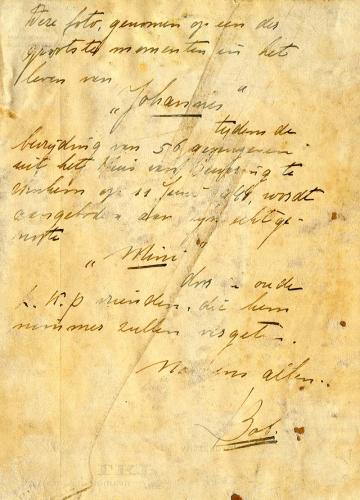 Deze foto, genomen op een der
grootste momenten in het
leven van
„Johannes"
tijdens de
bevrijding van 56 gevangenen
uit het Huis van Bewaring te
Arnhem op 11 Juni 1944, wordt
aangeboden aan zijn echtge-
note
„Mimi"
door oude
L.K.P vrienden, die hem
nimmer zullen vergeten.
Namens allen..
Bob.